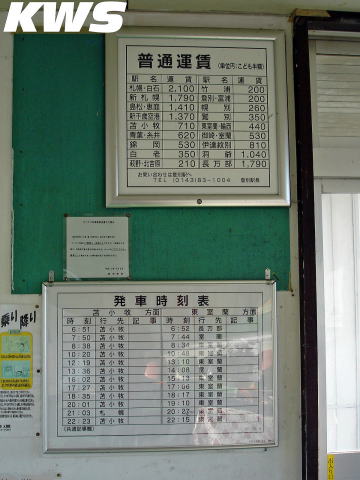 KWS
普通運賃 (単位円:こども半額)
駅名 運賃 駅名 運賃
札幌・白石 2,100 竹浦 200
新札幌 1,790 登別・富浦 200
島松・恵庭 1,410 幌別 260
新千歳空港 1,370 鷲別 350
苫小牧 710 東室蘭・輪西 440
青葉・糸井 620 御崎・室蘭 530
錦岡 530 伊達紋別 810
白老 350 洞爺 1,040
萩野・北吉原 210 長万部 1,790
お問い合わせは登別駅へ
TEL (0143)83-1004 登別駅長
発車時刻表
苫小牧 方面 東室蘭 方面
時刻 行先 記事 時刻 行先 記事
6:51 苫小牧 6:52 長万部
7:50 苫小牧 7:44 室蘭
8:38 苫小牧 8:34
10:20 苫小牧 10:48
12:19 苫小牧 13:10 室蘭
13:36 苫小牧 14:08 室蘭
16:02 苫小牧 15:13 東室蘭
17:27 苫小牧 17:06 東室蘭
18:35 苫小牧 18:17 東室蘭
20:01 苫小牧 19:10 東室蘭
21:03 札幌 20:27 東室蘭
22:23 苫小牧 22:15 東室蘭
(共通記事欄)
乗り 降り